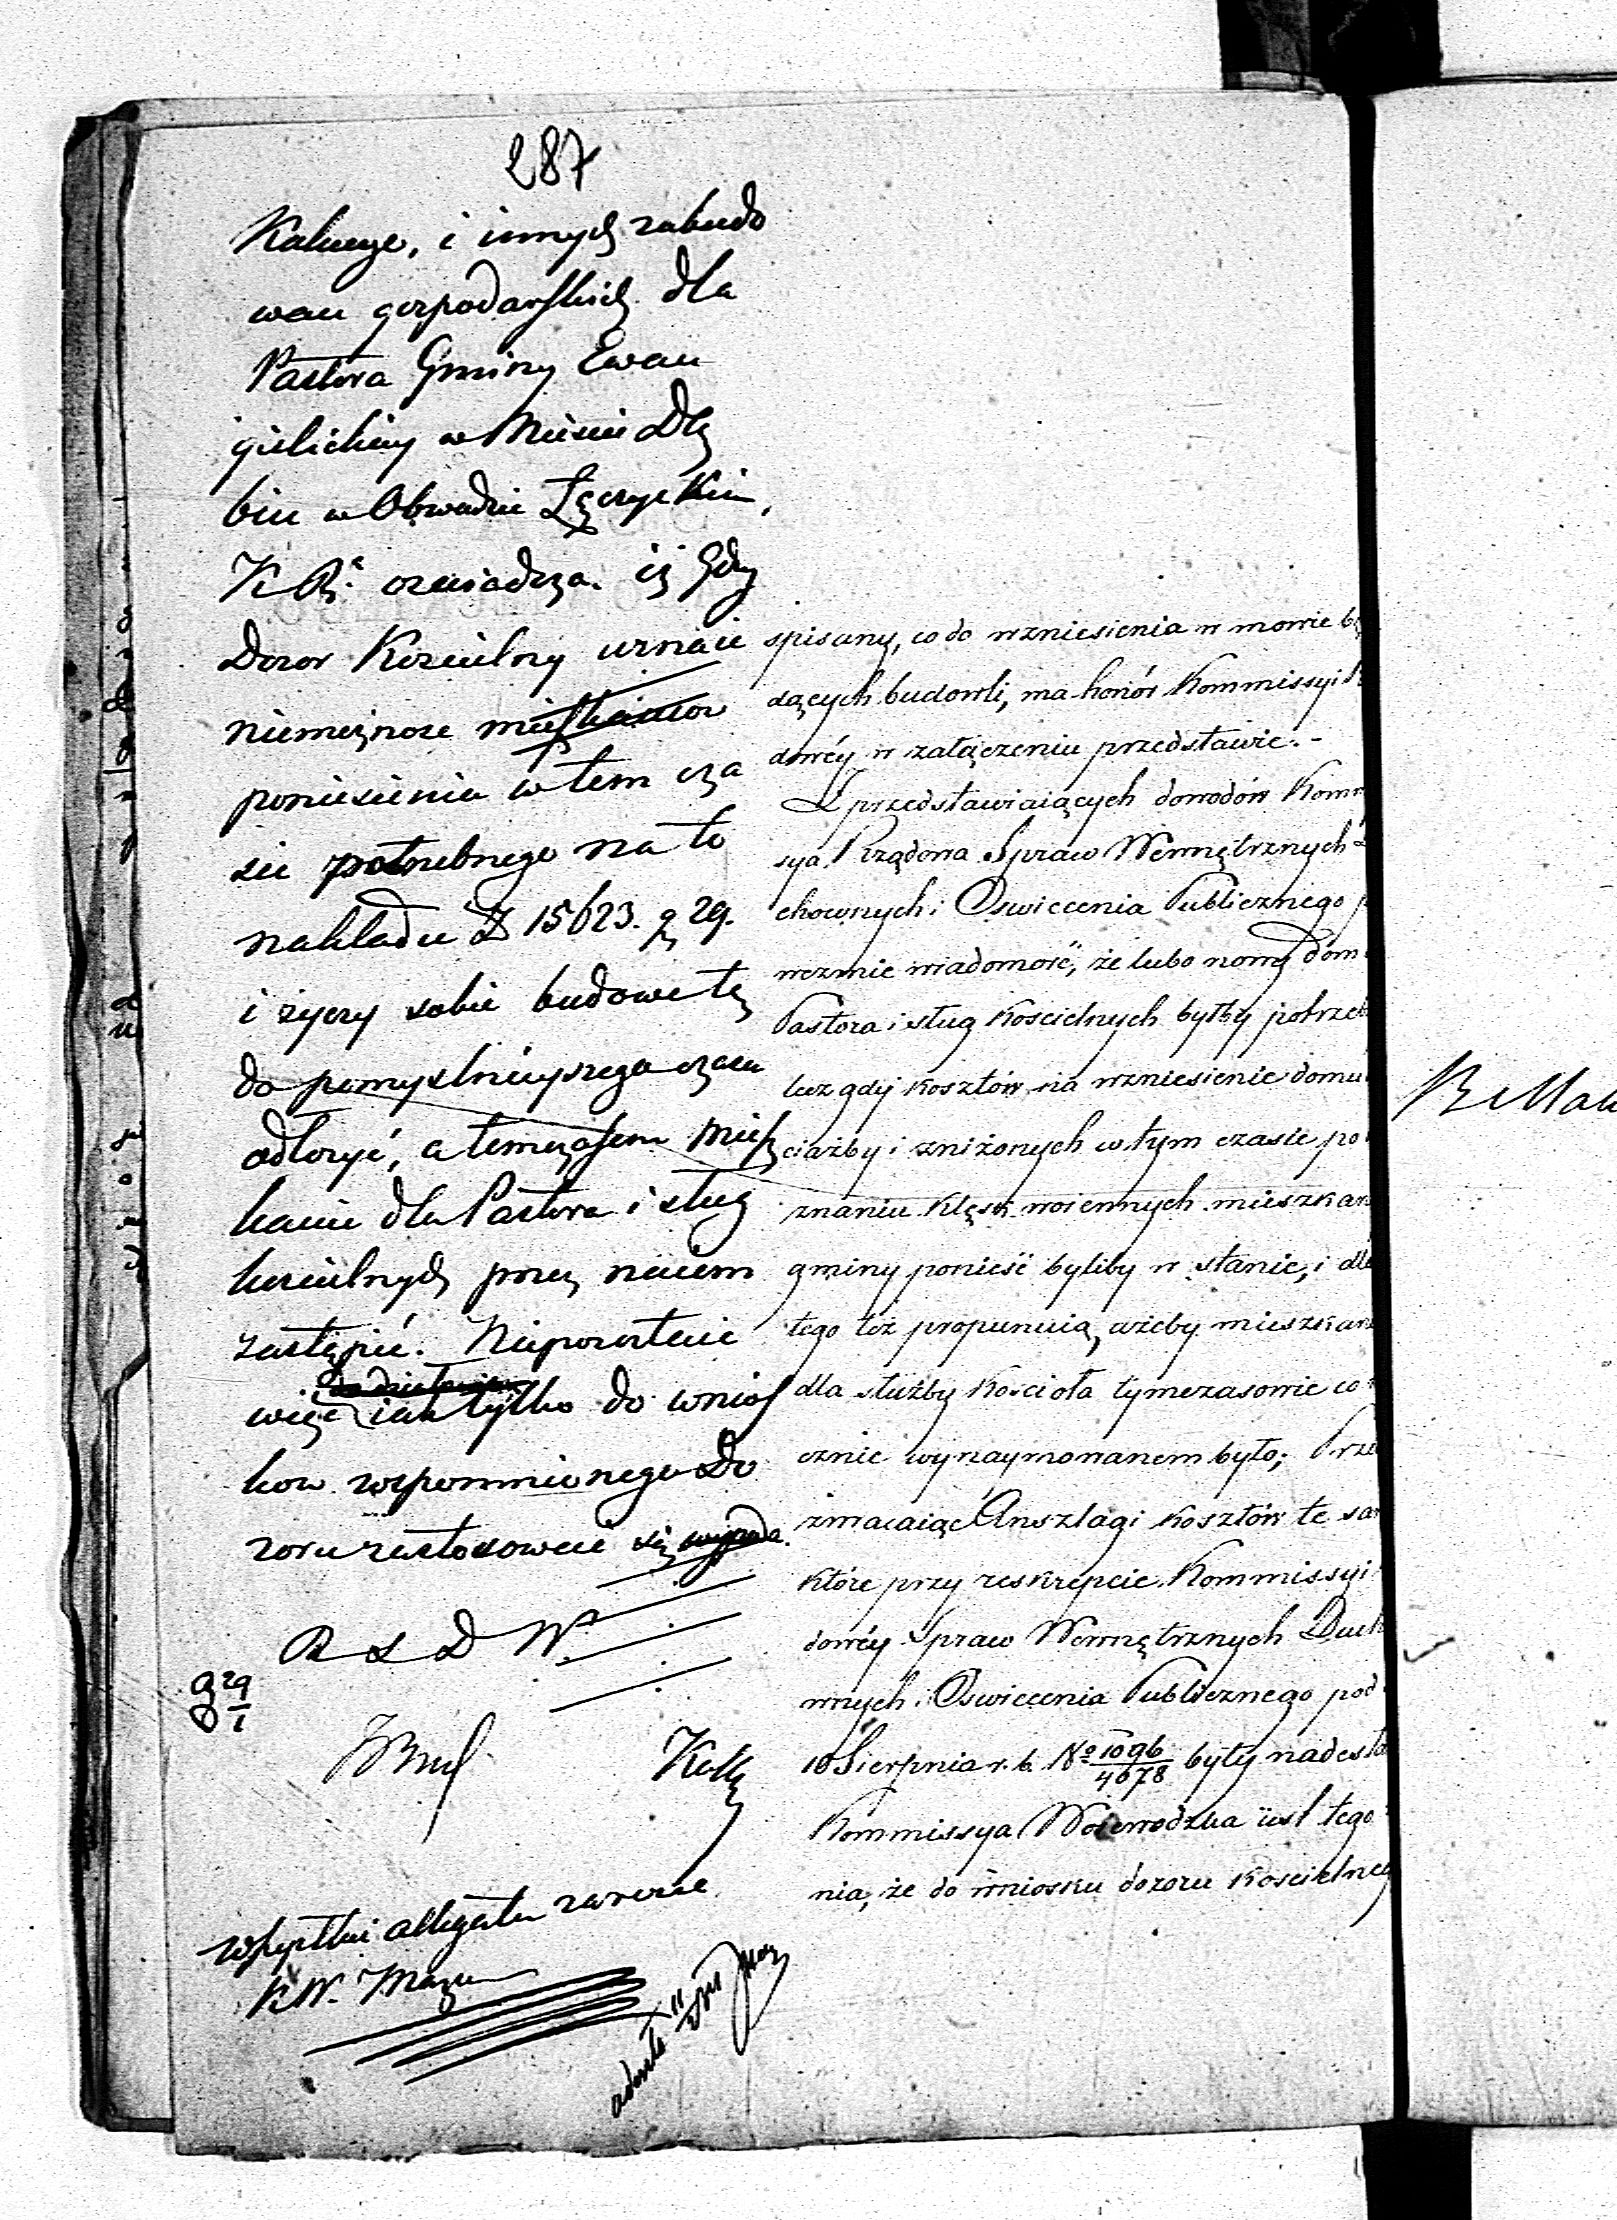 287
Kaliszu, i innych zabudo
wań gospodarskich dla
Pastora Gminy Ewan
gielickiey w Mieście Dą
biu w Obwodzie Łęczyckim,
K R. oświadcza iż gdy
Dozor Koscielny uznaie
niemożnosc mieszkancow
poniesienia w tem cza
sie potrzebnego na to
nakładu Z 15623. g 29.
i życzy sobie budowe tę
do pomyslnieyszego czasu
odłożyć, a temczasem miesz
kanie dla Pastora i sług
koscielnych przez naiem
zastąpić. Niepozostaie
więc iak tylko do wnios
kow wspomnionego Do
zoru zastosowac się wypada.
R S D W.
29
1
wszystkie allegata zwrocic
K W. Mazu
spisany, co do wzniesienia w mowie bę
dących budowli, ma honór Kommissyi R
dowéy w załączeniu przedstawić.-
Z przedstawiaiących dowodów Komm
sya Rządowa Spraw Wewnętrznych
chownych i Oswiecenia Publicznego p
wezmie wiadomość, że lubo nowy dom
Pastora i sług Koscielnych byłby potrzeb
lecz gdy kosztów na wzniesienie domu
ciażby i zniżonych w tym czasie po
znaniu klęsk woiennych mieszkań
gminy ponieść byliby w stanie, i dla
tego też proponuią, ażeby mieszkan
dla służby Kościoła tymczasowie co
cznie wynaymowanem było; Prze
zwracaiąc Anszlagi kosztów te sam
które przy reskrypcie Kommissyi
dowéy Spraw Wewnętrznych Duch
wnych i Oswiecenia Publicznego pod
10 Sierpnia r. b. No 1096/4678 były nadesła
Kommissya Woiewodzka iest tego
nia, że do wniosku dozoru Koscielneg